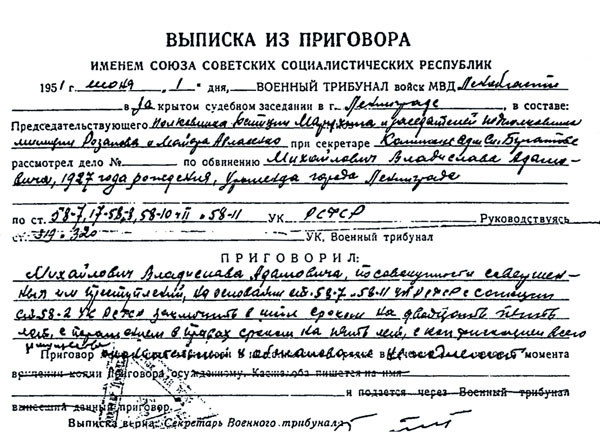 ВЫПИСКА ИЗ ПРИГОВОРА
ИМЕНЕМ СОЮЗА СОВЕТСКИХ СОЦИАЛИСТИЧЕСКИХ РЕСПУБЛИК
1951 г. июня „1" дня, ВОЕННЫЙ ТРИБУНАЛ войск МВД Ленобласти
в закрытом судебном заседании в г. Ленинграде, в составе:
Председательствующего полковника юстиции и заседателей подполковника
милиции Розанова и майора при секретаре
рассмотрел дело № по обвинению Михайлович Владислава Адамо-
вича, 1927 года рождения, уроженца города Ленинграда
по ст. 58-7, 17-58-8, 58-10 ч II и 58-11 УК РСФСР Руководствуясь
ст. 319-320 УК, Военный трибунал
ПРИГОВОРИЛ:
Михайлович Владислава Адамовича, по совокупности совершен-
ных им преступлений, на основании ст. 58-7 и 58-11 УК РСФСР с санкции
ст. 58-2 УК РСФСР заключить в ИТЛ сроком на двадцать пять
лет, с поражением в правах сроком на пять лет, с конфискацией всего
имущества
Приговор окончательный и обжалованию не подлежит момента
вручения копии приговора осужденному. Касжалоба пишется на имя
и подается через Военный трибунал
вынесший данный приговор.
Выписка верна: Секретарь Военного трибунала